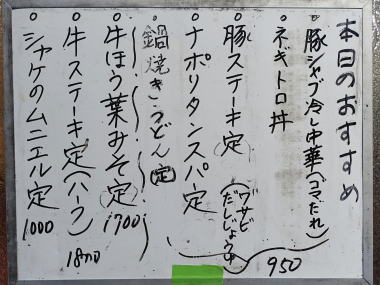 本日のおすすめ
豚シャブ冷し中華(ゴマだれ)
ネギトロ丼
豚ステーキ定(ワサビだしじょうゆ)
ナポリタンスパ定
950
鍋焼きうどん(定)
牛ほう葉みそ定 1700
牛ステーキ定(ハーフ) 1800
シャケのムニエル定 1000